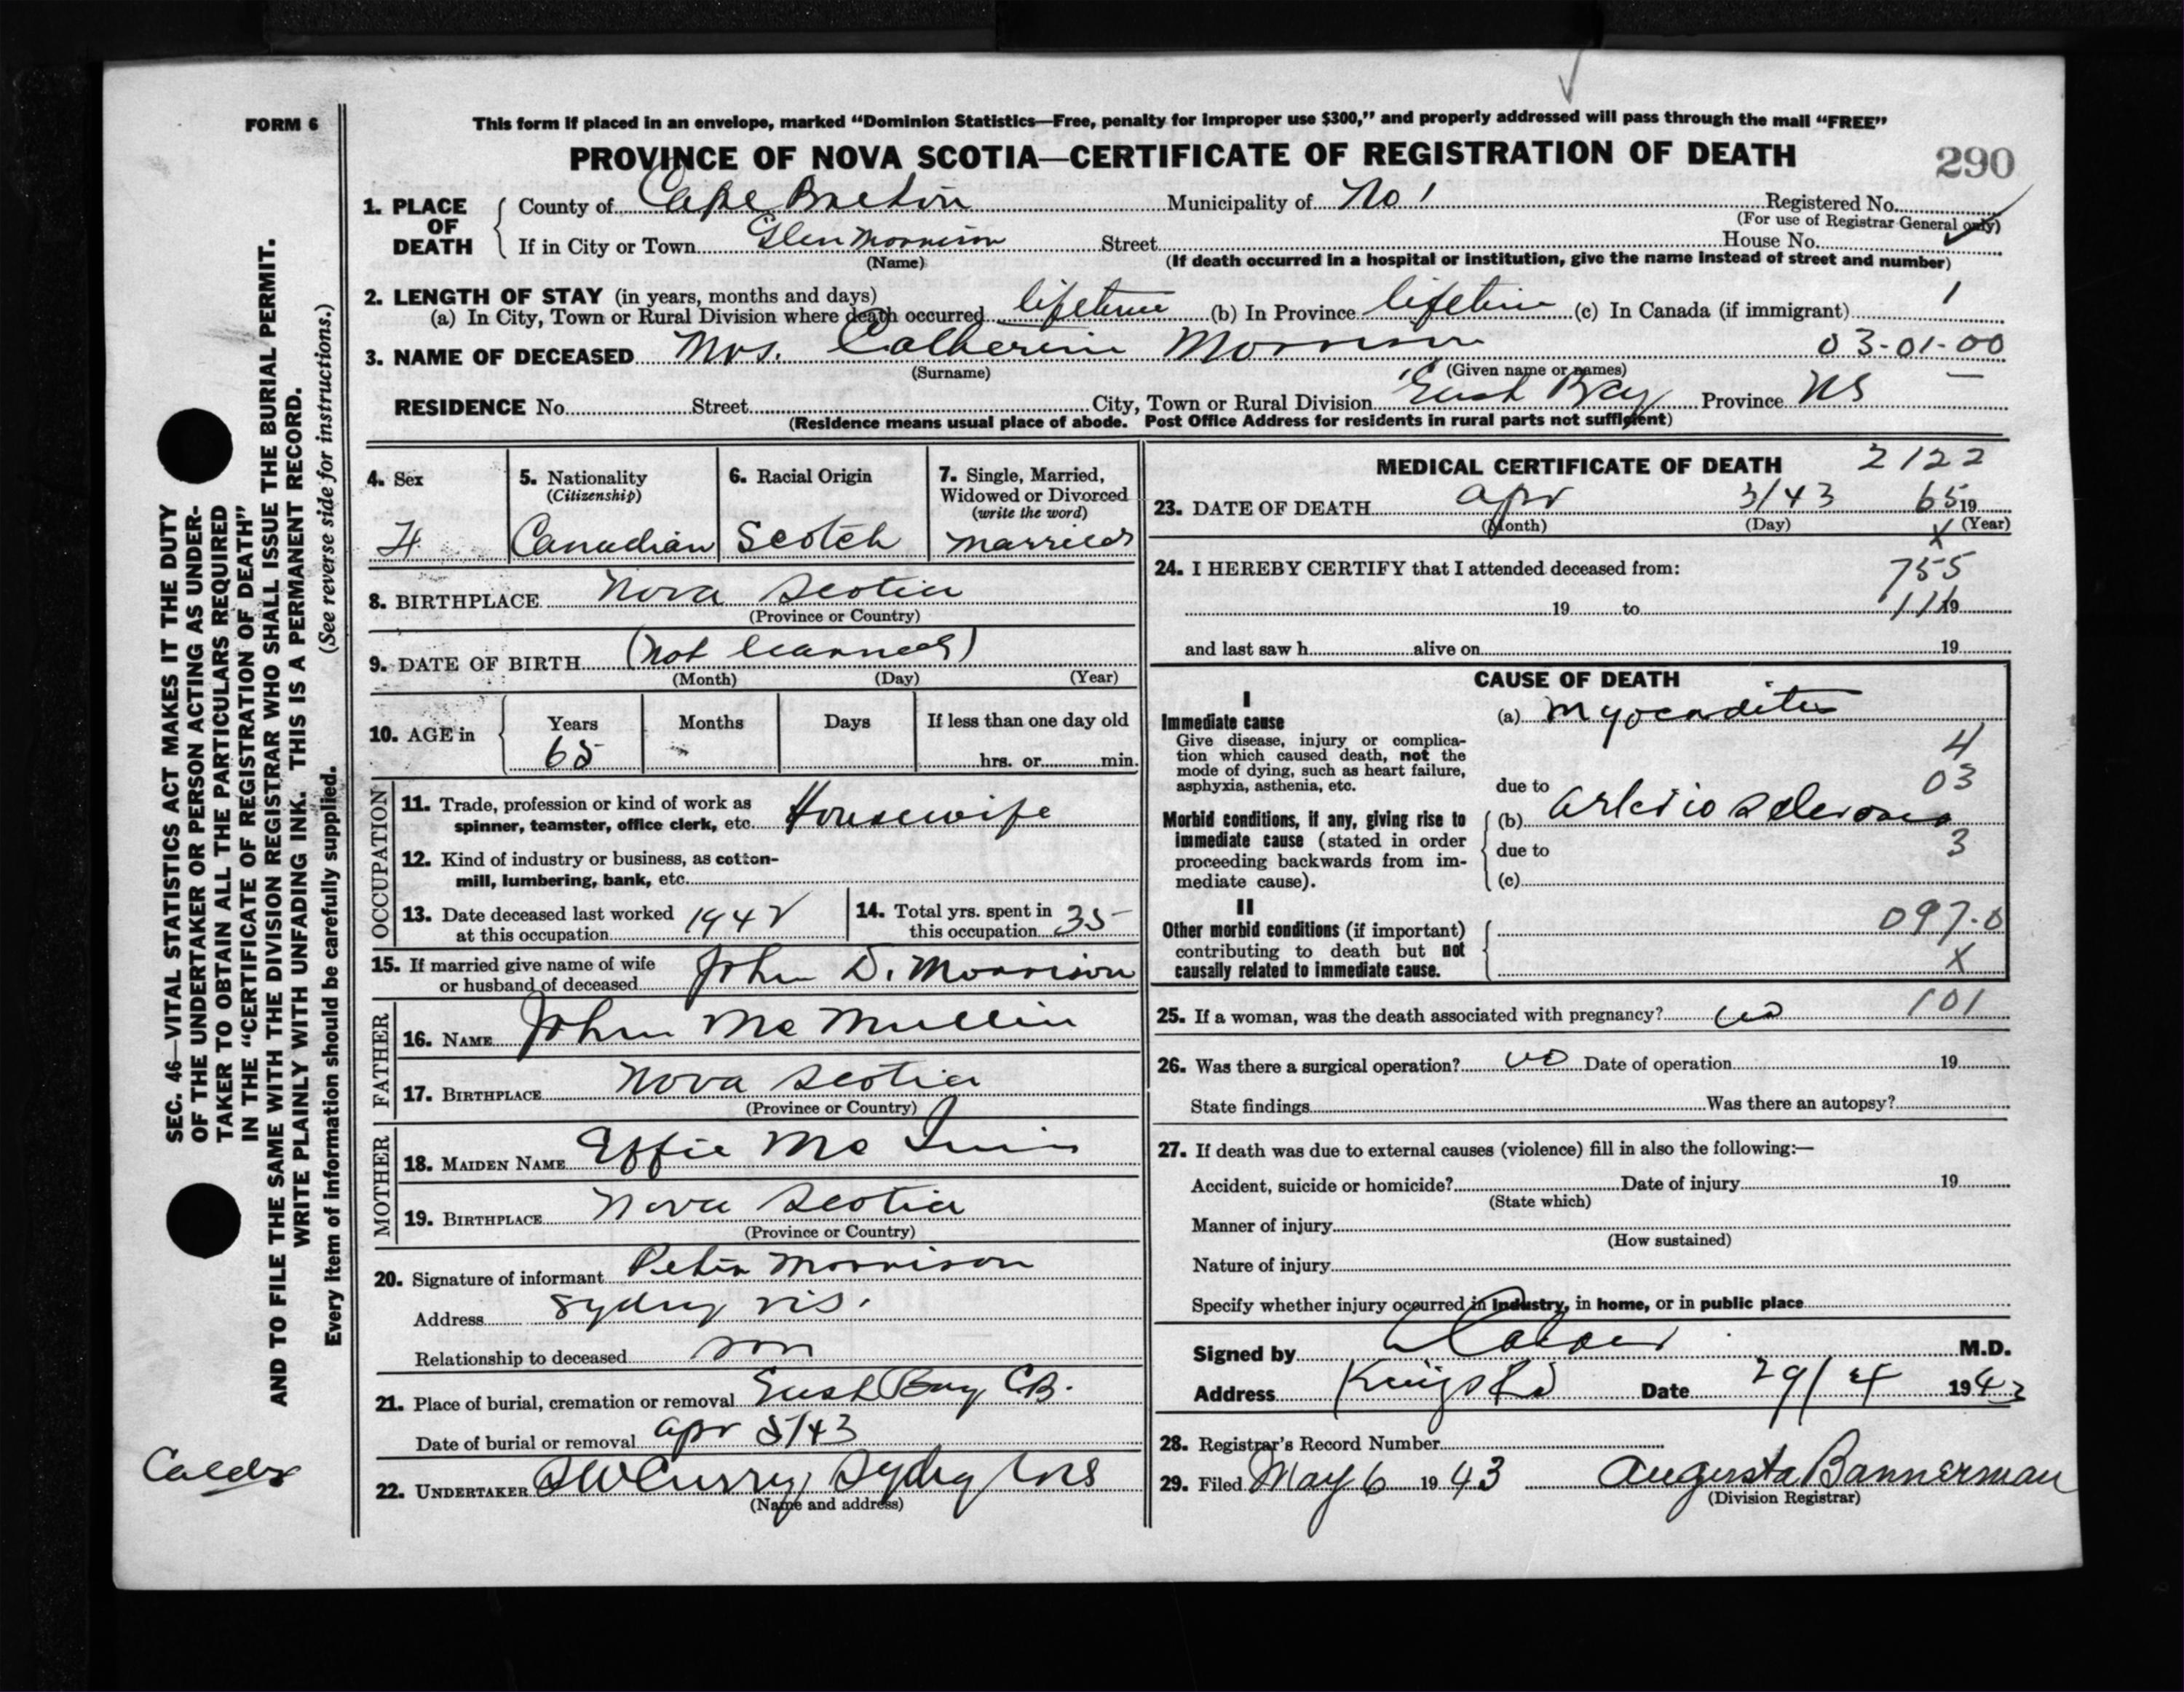 FORM 6
This form if placed in an envelope, marked “Dominion Statistics—Free, penalty for improper use $300,” and properly addressed will pass through the mail “FREE”
PROVINCE OF NOVA SCOTIA—CERTIFICATE OF REGISTRATION OF DEATH
290
1. PLACE OF DEATH
County of Cape Breton Municipality of No 1 Registered No.
(For use of Registrar General only)
If in City or Town Glen Morrison Street House No.
(Name) (If death occurred in a hospital or institution, give the name instead of street and number)
2. LENGTH OF STAY (in years, months and days)
(a) In City, Town or Rural Division where death occurred lifetime (b) In Province lifetime (c) In Canada (if immigrant) 1
3. NAME OF DECEASED Mrs. Catherine Morrison 03-01-00
(Surname) (Given name or names)
RESIDENCE No. Street City, Town or Rural Division East Bay Province NS
(Residence means usual place of abode. Post Office Address for residents in rural parts not sufficient)
4. Sex
F
5. Nationality
(Citizenship)
Canadian
6. Racial Origin
Scotch
7. Single, Married,
Widowed or Divorced
(write the word)
Married
8. BIRTHPLACE Nova Scotia
(Province or Country)
9. DATE OF BIRTH (Not learned)
(Month) (Day) (Year)
10. AGE in
Years Months Days If less than one day old
65 hrs. or min.
OCCUPATION
11. Trade, profession or kind of work as
spinner, teamster, office clerk, etc. Housewife
12. Kind of industry or business, as cotton-
mill, lumbering, bank, etc.
13. Date deceased last worked
at this occupation 1942
14. Total yrs. spent in
this occupation 35
15. If married give name of wife
or husband of deceased John D. Morrison
FATHER
16. NAME John Mc Mullin
17. BIRTHPLACE Nova Scotia
(Province or Country)
MOTHER
18. MAIDEN NAME Effie Mc
19. BIRTHPLACE Nova Scotia
(Province or Country)
20. Signature of informant Peter Morrison
Address Sydney NS.
Relationship to deceased son
21. Place of burial, cremation or removal East Bay CB.
Date of burial or removal Apr 5/43
22. UNDERTAKER Curry, Sydney NS
(Name and address)
MEDICAL CERTIFICATE OF DEATH 2122
23. DATE OF DEATH Apr 3/43 65 19
(Month) (Day) X (Year)
24. I HEREBY CERTIFY that I attended deceased from:
755
19 to 111 19
and last saw h alive on 19
CAUSE OF DEATH
I
Immediate cause
Give disease, injury or complica-
tion which caused death, not the
mode of dying, such as heart failure,
asphyxia, asthenia, etc.
(a) Myocarditis
4
03
due to
Morbid conditions, if any, giving rise to
immediate cause (stated in order
proceeding backwards from im-
mediate cause).
(b) Arterio sclerosis
due to 3
(c)
II
Other morbid conditions (if important)
contributing to death but not
causally related to immediate cause.
097.0
X
25. If a woman, was the death associated with pregnancy? no 101
26. Was there a surgical operation? no Date of operation 19
State findings Was there an autopsy?
27. If death was due to external causes (violence) fill in also the following:—
Accident, suicide or homicide? Date of injury 19
(State which)
Manner of injury
(How sustained)
Nature of injury
Specify whether injury occurred in industry, in home, or in public place
Signed by M.D.
Address Kings Rd Date 29/4 1943
28. Registrar's Record Number
29. Filed May 6 1943 Augusta Bannerman
(Division Registrar)
SEC. 46—VITAL STATISTICS ACT MAKES IT THE DUTY
OF THE UNDERTAKER OR PERSON ACTING AS UNDER-
TAKER TO OBTAIN ALL THE PARTICULARS REQUIRED
IN THE “CERTIFICATE OF REGISTRATION OF DEATH”
AND TO FILE THE SAME WITH THE DIVISION REGISTRAR WHO SHALL ISSUE THE BURIAL PERMIT.
WRITE PLAINLY WITH UNFADING INK. THIS IS A PERMANENT RECORD.
(See reverse side for instructions.)
Every item of information should be carefully supplied.
Calder